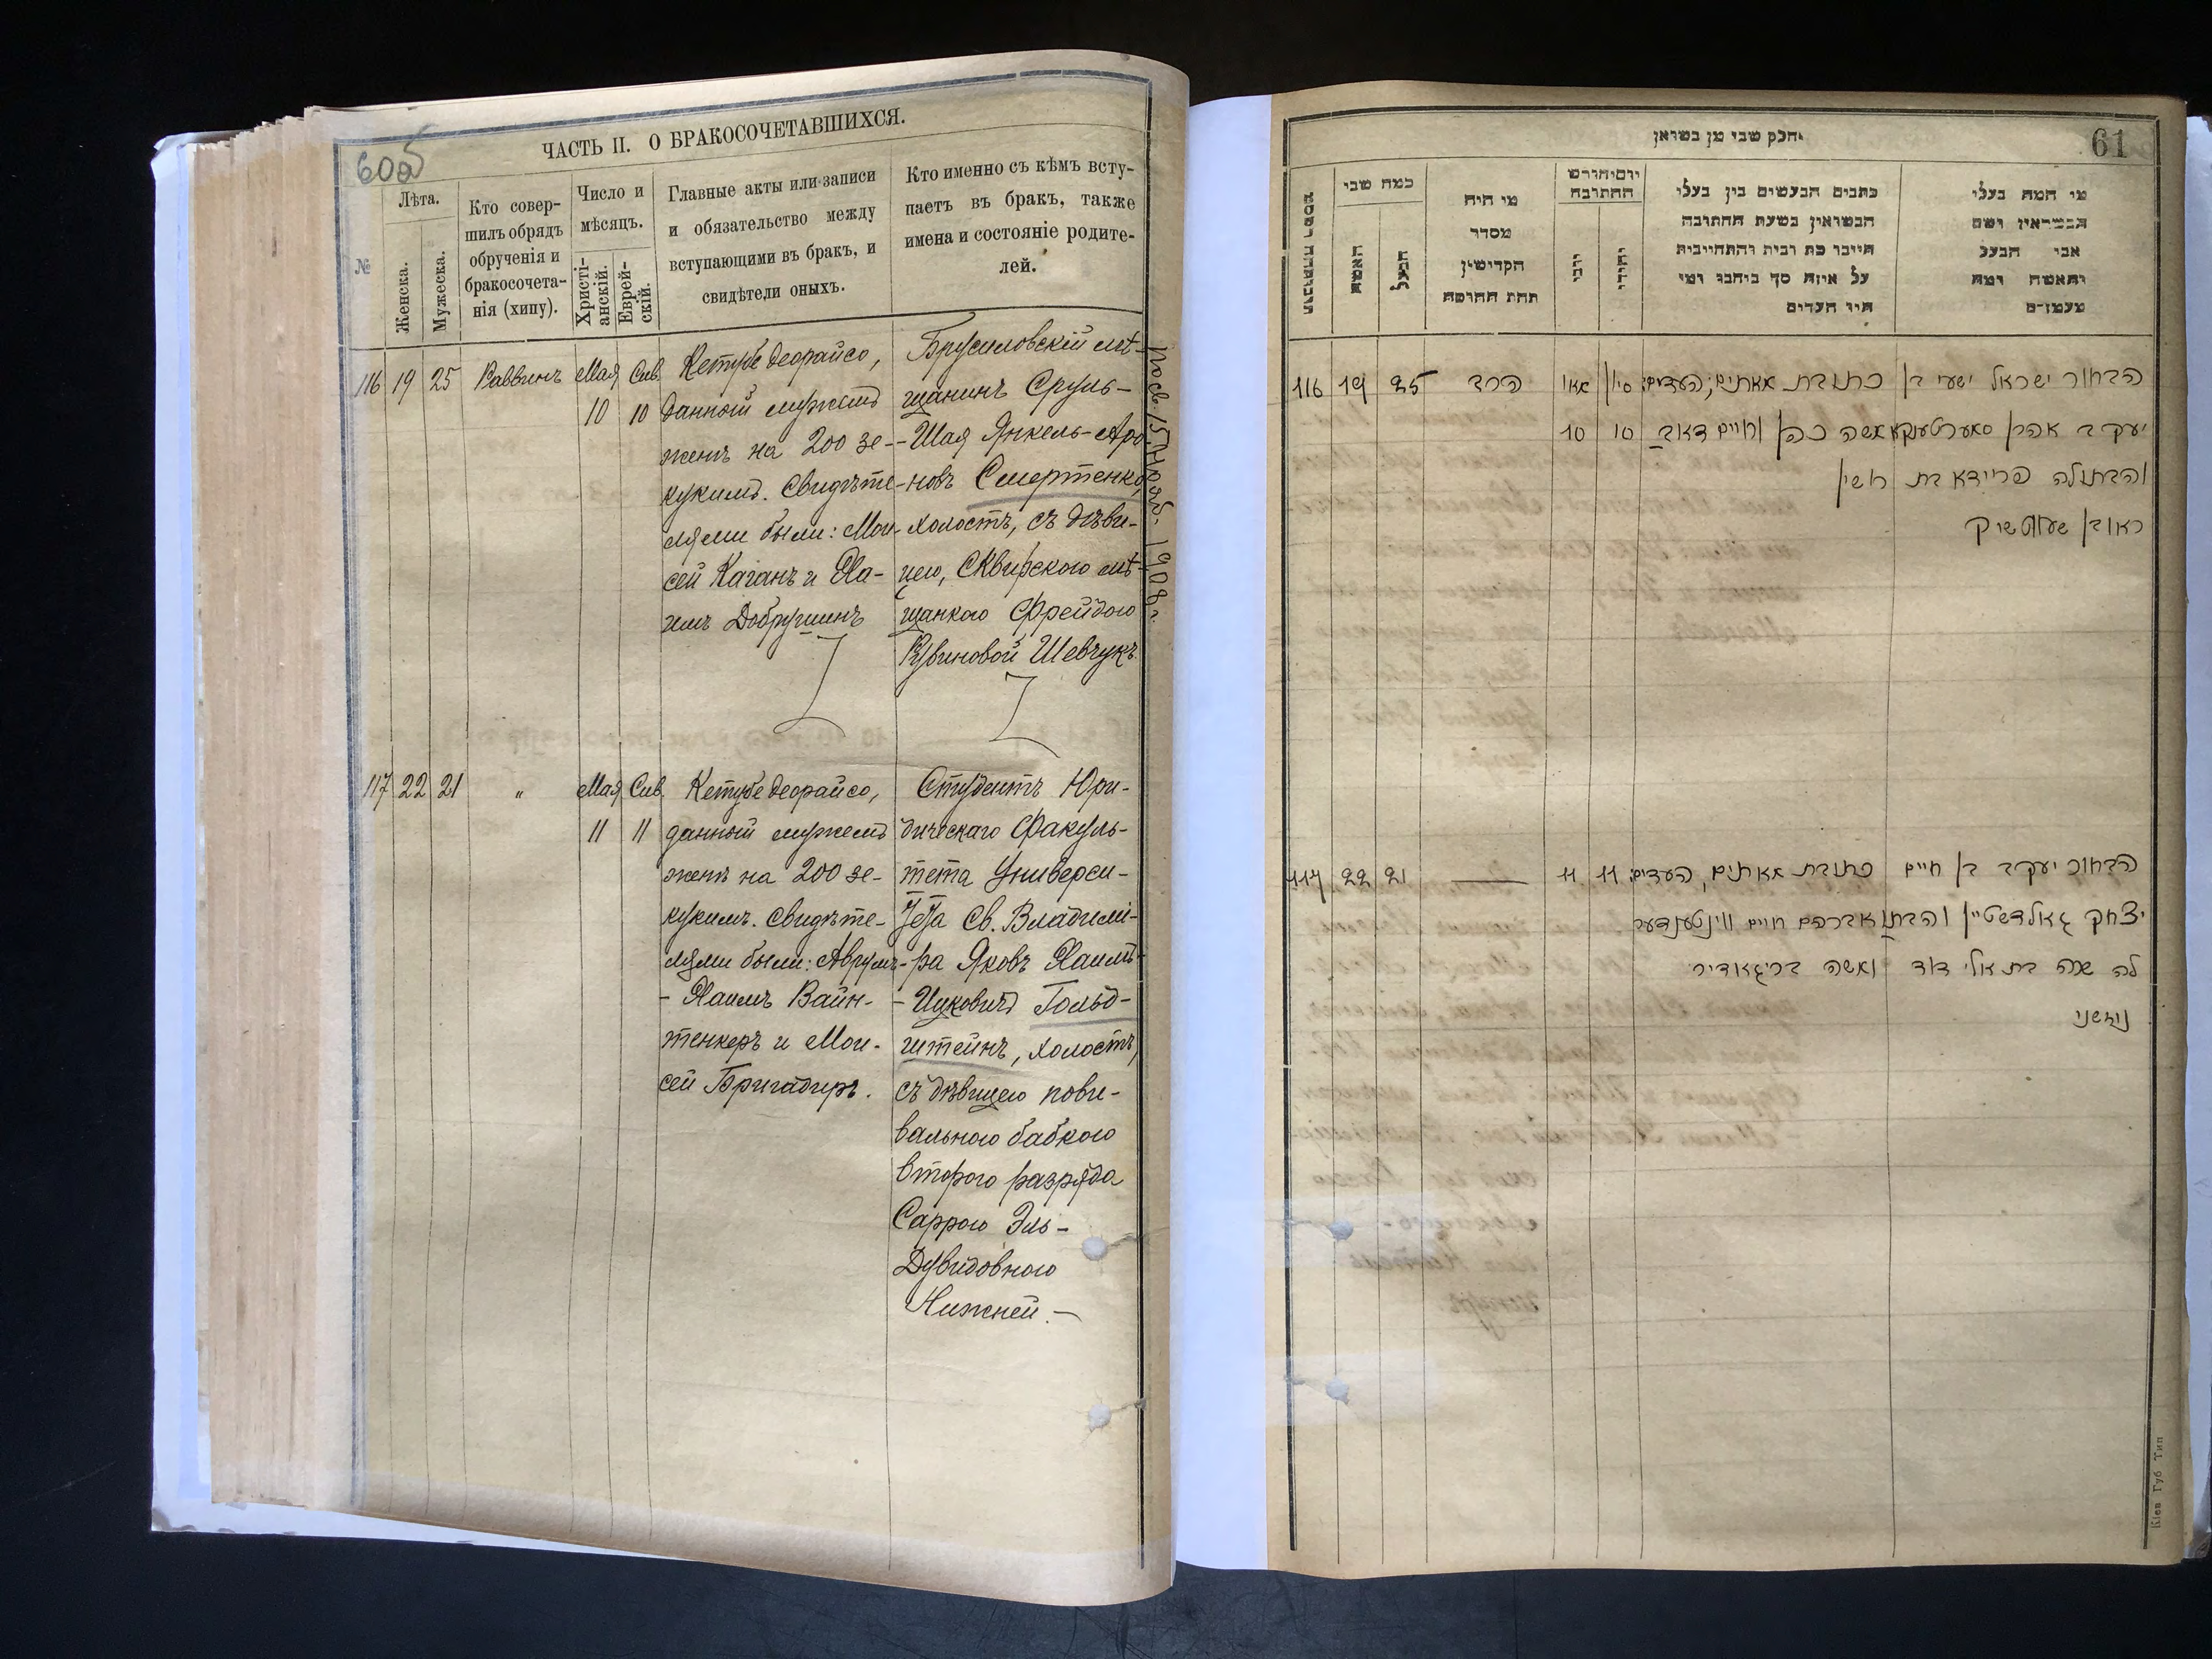 60об
ЧАСТЬ II. О БРАКОСОЧЕТАВШИХСЯ.
№
Лѣта.
Женска.
Мужеска.
Кто совер-
шилъ обрядъ
обрученія и
бракосочета-
нія (хипу).
Число и
мѣсяцъ.
Христі-
анскій.
Еврей-
скій.
Главные акты или записи
и обязательство между
вступающими въ бракъ, и
свидѣтели оныхъ.
Кто именно съ кѣмъ всту-
паетъ въ бракъ, также
имена и состояніе родите-
лей.
116 19 25 Раввинъ Мая 10 Сив. 10
Кетубе деорайсо,
данный мужемъ
женѣ на 200 зе-
кукимъ. Свидѣте-
лями были: Мои-
сей Каганъ и Ха-
имъ Добрушинъ
Брусиловскій мѣ-
щанинъ Сруль-
-Шая Янкель-Аро
новъ Смертенко,
холостъ, съ дѣви-
цею, Сквирскою мѣ-
щанкою Фрейдою
Рувиновой Шевчукъ.
117 22 21 " Мая 11 Сив. 11
Кетубе деорайсо,
данный мужемъ
женѣ на 200 зе-
кукимъ. Свидѣте-
лями были: Аврумъ-
-Хаимъ Вайн-
тенкеръ и Мои-
сей Бригадиръ.
Студентъ Юри-
дическаго Факуль-
тета Универси-
тета Св. Владимі-
ра Яковъ Хаимъ-
-Ицковичъ Гольд-
штейнъ, холостъ,
съ дѣвицею пови-
вальною бабкою
второго разряда
Саррою Эль-
Дувидовною
Нижней.
61
מי המה בעלי
אבי הבעל
כתבים הנעשים בין בעלי
הנשואין בשעת החתונה
על איזה סך
היו העדים
מי היה
מסדר
הקדושין
תחת החופה
כמה שני
האשה
הבעל
116 19 25 הרב מאי 10 סיון 10
כתובת מאתים, העדים:
משה כהן וחיים דאבר
הבחור ישראל ישעי בן
יעקב אהרן סמערטענקא
והבתולה פריידא בת
ראובן שעווטשוק
117 22 21 11 11
כתובת מאתים, העדים:
אברהם חיים וויינטענקער
ומשה בריגאדיר
הבחור יעקב בן חיים
יצחק גאלדשטיין והבתו
לה שרה בת אלי דוד
ניזשני
Кіев Губ Тип